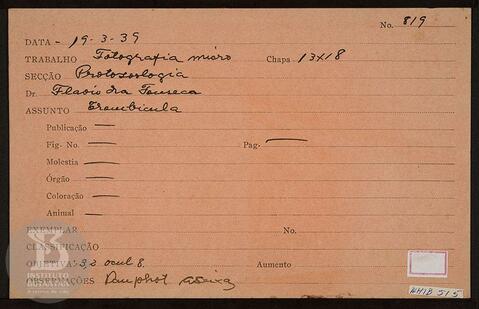 No. 819
DATA - 19-3-39
TRABALHO Fotografia micro Chapa 13X18
SECÇÃO Protozoologia
Dr. Flavio da Fonseca
ASSUNTO Trombicula
Publicação —
Fig. No. — Pag. —
Molestia —
Órgão —
Coloração —
Animal —
EXEMPLAR No.
CLASSIFICAÇÃO
OBJETIVA: 3,2 ocul 8. Aumento
OBSERVAÇÕES Panphot
INSTITUTO
BUTANTAN
AHIB 515